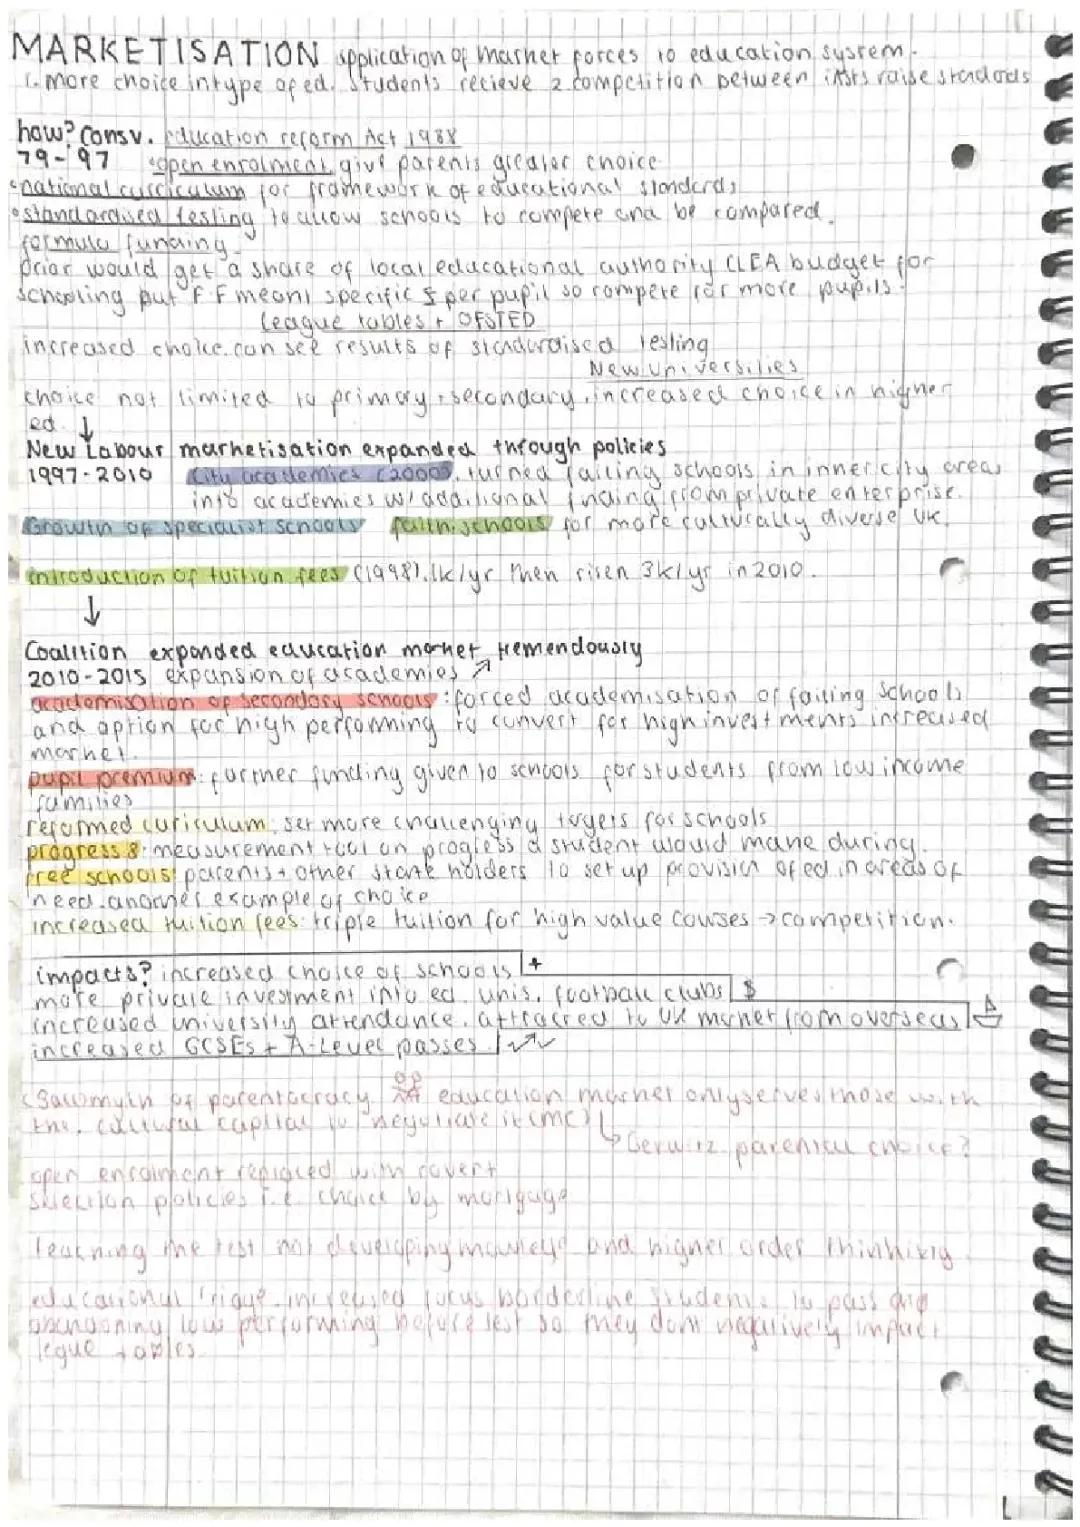 MARKETISATION application of market forces to education system.
1. more choice in type of ed. students recieve 2. competition between insts raise standards
how? Consv. Education reform Act 1988
79-'97 open enrolment give parents greater choice
national curriculum for framework of educational standards
standardised testing to allow schools to compete and be compared.
formula funding
prior would get a share of local educational authority (LEA budget for
schooling but FF means specific £ per pupil so compete for more pupils.
league tables + OFSTED
increased choice. can see results of standardised testing
New universities
choice not limited to primary + secondary, increased choice in higher
ed. ↓
New Labour marketisation expanded through policies
1997-2010 City academies (2000). turned failing schools in inner city areas
into academies w/ additional funding from private enterprise.
Growth of specialist schools faith schools for more culturally diverse UK.
introduction of tuition fees (1998). 1k/yr then risen 3k/yr in 2010.
↓
Coalition expanded education market tremendously
2010-2015 expansion of academies ↗
academisation of secondary schools: forced academisation of failing schools
and option for high performing to convert for high investments increased
market.
pupil premium: further funding given to schools for students from low income
families
reformed curiculum: set more challenging targets for schools
progress 8: measurement tool on progress a student would make during.
free schools: parents + other stake holders to set up provision of ed. in areas of
need. another example of choice
increased tuition fees: triple tuition for high value courses → competition.
impacts? increased choice of schools +
more private investment into ed. unis. football clubs $
increased university attendance. attracted to UK market from overseas
increased GCSEs + A-Level passes.
myth of parentocracy education market only serves those with
the cultural capital to negotiate it (mc)
↳ Gerwitz. parental choice?
open enrolment replaced with covert
selection policies i.e. choice by mortgage
teaching the test not developing knowledge and higher order thinking
educational triage. increased focus borderline students to pass and
abandoning low performing before test so they dont negatively impact
legue tables.